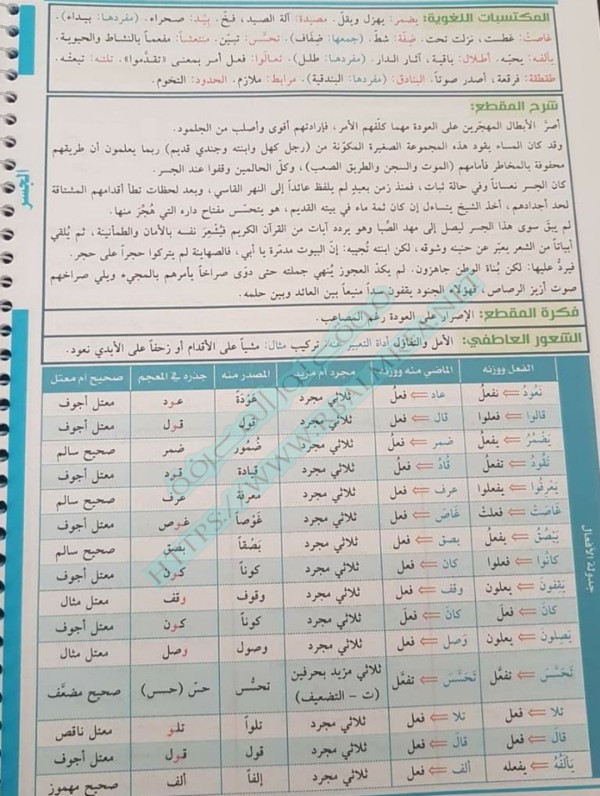 المكتسبات اللغوية: يضمر: يهزل ويقلّ. مصيدة: آلة الصيد، فخّ. بِيْد: صحراء. (مفردها: بيداء).
غاصتْ: غطست، نزلت تحت. ضفّة: شطّ. (جمعها: ضِفَاف). تحسَّس: تبيّن. منتعشاً: مفعماً بالنشاط والحيوية.
يألفه: يحبّه. أطلال: باقية، آثار الدار. (مفردها: طلل). تعالوا: فعل أمر بمعنى «تقدّموا». تلته: تبعته.
طقطقة: فرقعة، أصدر صوتاً. البنادق: (مفردها: البندقية). مرابط: ملازم. الحدود: التخوم.
شرح المقطع:
أصرّ الأبطال المهجّرين على العودة مهما كلّفهم الأمر، فإرادتهم أقوى وأصلب من الجلمود.
وقد كان المساء يقود هذه المجموعة الصغيرة المكوّنة من (رجل كهل وابنته وجندي قديم) ربما يعلمون أن طريقهم
محفوفة بالمخاطر فأمامهم (الموت والسجن والطريق الصعب)، وكلّ الحالمين وقفوا عند الجسر.
كان الجسر نعساناً وفي حالة ثبات، فمنذ زمن بعيدٍ لم يلفظ عائداً إلى النهر القاسي، وبعد لحظات تطأ أقدامهم المشتاقة
لحد أجدادهم، أخذ الشيخ يتساءل إن كان ثمة ماء في بيته القديم، هو يتحسّس مفتاح داره التي هُجّرَ منها.
لم يبقَ سوى هذا الجسر ليصل إلى مهد الصّبا وهو يردد آيات من القرآن الكريم فيُشعِرَ نفسه بالأمان والطمأنينة، ثم يُلقي
أبياتاً من الشعر يعبّر عن حنينه وشوقه، لكن ابنته تُجيبه: إن البيوت مدمّرة يا أبي، فالصهاينة لم يتركوا حجراً على حجر.
فيردّ عليها: لكن بُناة الوطن جاهزون. لم يكدْ العجوز يُنهي جملته حتى دوّى صراخاً يأمرهم بالمجيء ويلي صراخهم
صوت أزيز الرصاص، فهؤلاء الجنود يقفون سداً منيعاً بين العائد وبين حلمه.
فكرة المقطع: الإصرار على العودة رغم المصاعب.
الشعور العاطفي: الأمل والتفاؤل أداة التعبير عنه: تركيب مثال: مشياً على الأقدام أو زحفاً على الأيدي نعود.
الجسر
جدولة الأفعال
الفعل ووزنه الماضي منه ووزنه مجرد أم مزيد المصدر منه جذره في المعجم صحيح أم معتل
نَعُودُ ⇐ نفعلُ عاد ⇐ فعلُ ثلاثي مجرد عَوْدَة عود معتل أجوف
قالوا ⇐ فعلوا قال ⇐ فعلُ ثلاثي مجرد قول قول معتل أجوف
يَضْمُرُ ⇐ يفعلُ ضمر ⇐ فعلُ ثلاثي مجرد ضُمُور ضمر صحيح سالم
تَقُودُ ⇐ تفعلُ قادُ ⇐ فعلُ ثلاثي مجرد قيادة قود معتل أجوف
يَعْرِفُوا ⇐ يفعلوا عرف ⇐ فعل ثلاثي مجرد معرفة عرف صحيح سالم
غَاصَتْ ⇐ فعلتْ غَاصَ ⇐ فعل ثلاثي مجرد غَوْصاً غوص معتل أجوف
يَبْصُقُ ⇐ يفعلُ بصق ⇐ فعل ثلاثي مجرد بَصْقاً بصق صحيح سالم
كانُوا ⇐ فعلوا كان ⇐ فعل ثلاثي مجرد كوناً كون معتل أجوف
يَقِفونَ ⇐ يعلون وقف ⇐ فعل ثلاثي مجرد وقوف وقف معتل مثال
كانَ ⇐ فعلَ كانَ ⇐ فعلَ ثلاثي مجرد كوناً كون معتل أجوف
يَصِلونَ ⇐ يعلون وَصل ⇐ فعل ثلاثي مجرد وصول وصل معتل مثال
تَحَسَّسَ ⇐ تفعَّل تَحَسَّسَ ⇐ تفعَّل ثلاثي مزيد بحرفين (ت – التضعيف) تحسُّس حسّ (حسس) صحيح مضعَّف
تلا ⇐ فعل تلا ⇐ فعل ثلاثي مجرد تلواً تلو معتل ناقص
قالَ ⇐ فعل قالَ ⇐ فعل ثلاثي مجرد قول قول معتل أجوف
يَأْلَفُهُ ⇐ يفعله ألف ⇐ فعل ثلاثي مجرد إلفاً ألف صحيح مهموز